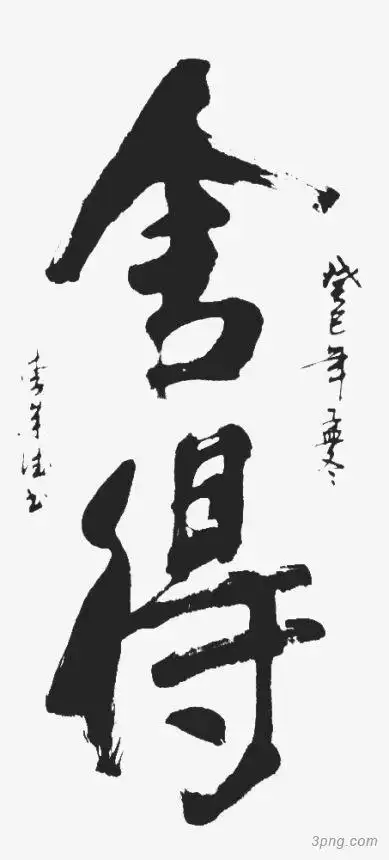 舍得
癸巳年孟冬
书
3png.com